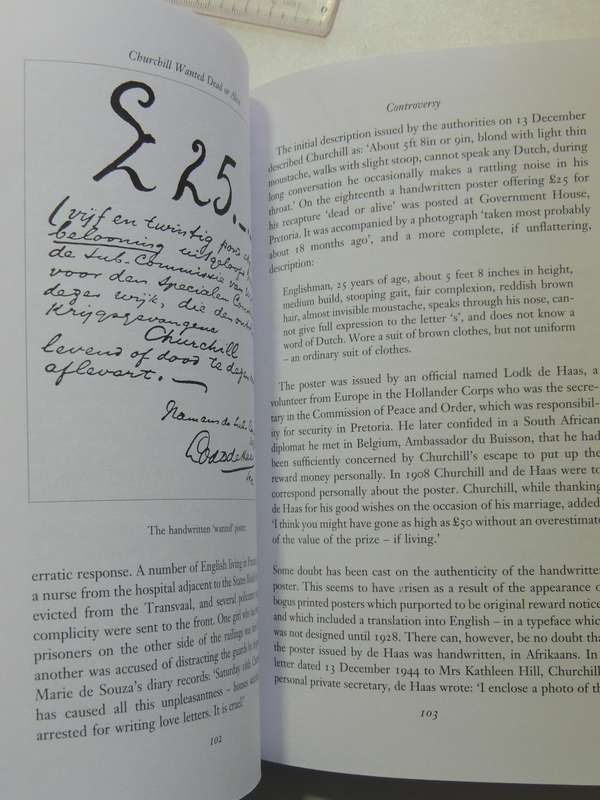 Churchill Wanted Dead or Alive
£25.–
(vijf en twintig pond
belooning uitgeloofd
de Sub-Commissie van
voor den Specialen
dezer wijk, die den
Krijgsgevangene
Churchill
levend of dood te dezen
aflevert.
Namens de Sub.
de Haas
The handwritten 'wanted' poster
erratic response. A number of English living in
a nurse from the hospital adjacent to the States
evicted from the Transvaal, and several
complicity were sent to the front. One girl who
prisoners on the other side of the railings was
another was accused of distracting the guards
Marie de Souza's diary records: 'Saturday 16th
has caused all this unpleasantness – houses
arrested for writing love letters. It is cruel.'
102
Controversy
The initial description issued by the authorities on 13 December
described Churchill as: 'About 5ft 8in or 9in, blond with light thin
moustache, walks with slight stoop, cannot speak any Dutch, during
long conversation he occasionally makes a rattling noise in his
throat.' On the eighteenth a handwritten poster offering £25 for
his recapture 'dead or alive' was posted at Government House,
Pretoria. It was accompanied by a photograph 'taken most probably
about 18 months ago', and a more complete, if unflattering,
description:
Englishman, 25 years of age, about 5 feet 8 inches in height,
medium build, stooping gait, fair complexion, reddish brown
hair, almost invisible moustache, speaks through his nose, can-
not give full expression to the letter 's', and does not know a
word of Dutch. Wore a suit of brown clothes, but not uniform
– an ordinary suit of clothes.
The poster was issued by an official named Lodk de Haas, a
volunteer from Europe in the Hollander Corps who was the secre-
tary in the Commission of Peace and Order, which was responsibil-
ity for security in Pretoria. He later confided in a South African
diplomat he met in Belgium, Ambassador du Buisson, that he had
been sufficiently concerned by Churchill's escape to put up the
reward money personally. In 1908 Churchill and de Haas were to
correspond personally about the poster. Churchill, while thanking
de Haas for his good wishes on the occasion of his marriage, added
'I think you might have gone as high as £50 without an overestimate
of the value of the prize – if living.'
Some doubt has been cast on the authenticity of the handwritten
poster. This seems to have arisen as a result of the appearance of
bogus printed posters which purported to be original reward notices
and which included a translation into English – in a typeface which
was not designed until 1928. There can, however, be no doubt that
the poster issued by de Haas was handwritten, in Afrikaans. In
letter dated 13 December 1944 to Mrs Kathleen Hill, Churchill's
personal private secretary, de Haas wrote: 'I enclose a photo of the
103